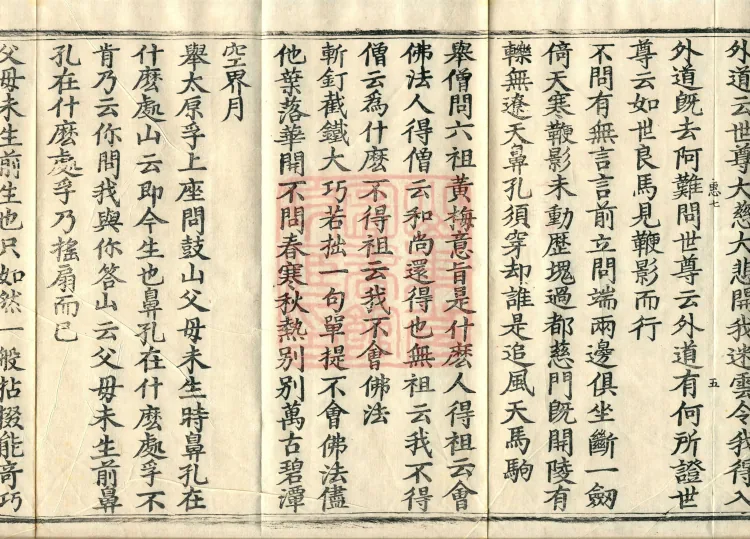 外道云世尊大慈大悲開我迷雲令我得入
惠七 五
外道旣去阿難問世尊云外道有何所證世
尊云如世良馬見鞭影而行
不問有無言言前立問端兩邊俱坐斷一劒
倚天寒鞭影未動歷塊過都慈門旣開陵有
轢無遼天鼻孔須穿却誰是追風天馬駒
舉僧問六祖黃梅意旨是什麽人得祖云會
佛法人得僧云和尚還得也無祖云我不得
僧云為什麽不得祖云我不會佛法
斬釘截鐵大巧若拙一句單提不會佛法儘
他葉落華開不問春寒秋熱別別萬古碧潭
空界月
舉太原孚上座問鼓山父母未生時鼻孔在
什麽處山云即今生也鼻孔在什麽處孚不
肯乃云你問我與你答山云父母未生前鼻
孔在什麽處孚乃搖扇而已
父母未生前生也只如然一般拈掇能竒巧